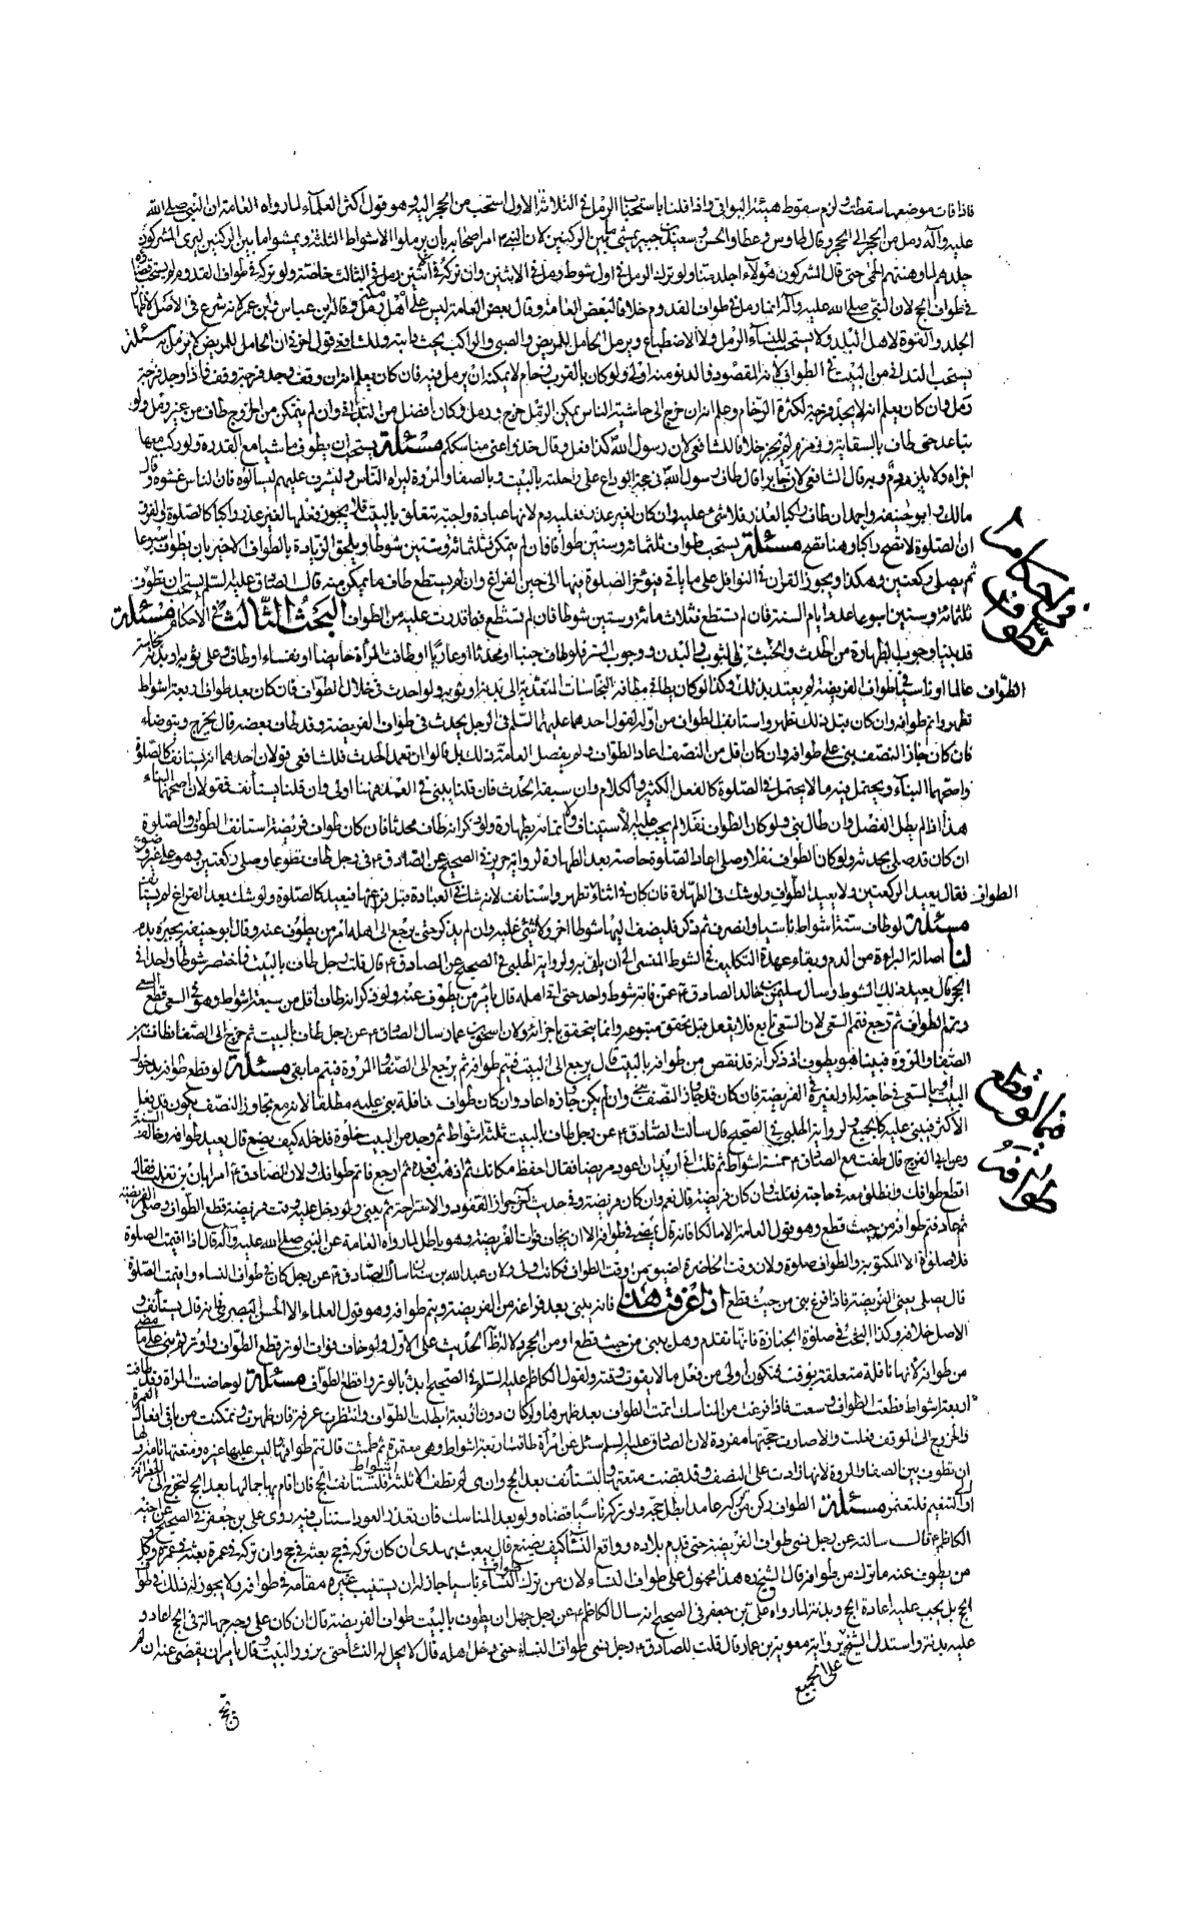 فاذا فات موضعها سقطت ولزم سقوط هيئة البواقي واذا قلنا باستحباب الرمل في الثلاثة الاول استحب من الحجر اليه وهو قول اكثر العلماء لما رواه العامة ان النبي صلى الله
عليه وآله رمل من الحجر الى الحجر وقال طاوس وعطا والحسن وسعيد بن جبير يمشي ما بين الركنين لان النبي امر اصحابه بان يرملوا الاشواط الثلثة ويمشوا ما بين الركنين ليرى المشركون
جلدهم لما وهنتهم الحمى حتى قال المشركون هؤلاء اجلد منا ولو ترك الرمل في اول شوط رمل في الاثنين وان تركه في اثنين رمل في الثالث خاصة ولو تركه في طواف القدوم لم يستحب قضاؤه
في طواف الحج لان النبي صلى الله عليه وآله انما رمل في طواف القدوم خلافا لبعض العامة وقال بعض العامة ليس على اهل مكة رمل وقاله ابن عباس وابن عمر لانه شرع في الاصل لاظهار
الجلد والقوة لاهل البلد ولا يستحب للنساء الرمل ولا الاضطباع ويرمل الحامل للمريض والصبي والراكب يحث دابته وللشافعي قول اخر في ان الحامل للمريض لا يرمل مسئلة
يستحب التداني من البيت في الطواف لانه المقصود فالدنو منه اولى ولو كان بالقرب زحام لا يمكنه ان يرمل فيه فان كان يعلم انه ان وقف وجد فرجة وقف فاذا وجد فرجة
رمل وان كان يعلم انه لا يجد فرجة لكثرة الزحام وعلم انه ان خرج الى حاشية الناس تمكن من الرمل خرج ورمل وكان افضل من التداني وان لم يتمكن من الخروج طاف من غير رمل ولو
تباعد حتى طاف بالسقاية وزمزم لم يجز خلافا للشافعي لان رسول الله كذا فعل وقال خذوا عني مناسككم مسئلة يستحب ان يطوف ماشيا مع القدرة ولو ركب معها
اجزاه ولا يلزمه دم وبه قال الشافعي لان جابرا قال طاف رسول الله في حجة الوداع على راحلته بالبيت وبالصفا والمروة ليراه الناس وليشرف عليهم ليسألوه فان الناس غشوه وقال
مالك وابو حنيفة واحمد ان طاف راكبا لعذر فلا شئ عليه وان كان لغير عذر فعليه دم لانها عبادة واجبة تتعلق بالبيت فلا يجوز فعلها لغير عذر راكبا كالصلوة والفرق
ان الصلوة لا تصح راكبا وهنا تصح مسئلة يستحب طواف ثلثمائة وستين طوافا فان لم يتمكن فثلثمائة وستين شوطا ويلحق الزيادة بالطواف الاخير بان يطوف اسبوعا
ثم يصلي ركعتين وهكذا ويجوز القران في النوافل على ما ياتي فيؤخر الصلوة فيها الى حين الفراغ وان لم يستطع طاف ما يمكن منه قال الصادق عليه السلم يستحب ان تطوف
ثلثمائة وستين اسبوعا عدد ايام السنة فان لم تستطع فثلاث مائة وستين شوطا فان لم تستطع فما قدرت عليه من الطواف البحث الثالث في الاحكام مسئلة
قد بينا وجوب الطهارة من الحدث والخبث في الثوب والبدن ووجوب الستر فلو طاف جنبا او محدثا او عاريا او طافت المرأة حائضا او نفساء او طاف وعلى ثوبه او بدنه نجاسة
الطواف عالما او ناسيا في طواف الفريضة لم يعتد بذلك وكذا لو كان يطا في مطافه النجاسات المتعدية الى بدنه او ثوبه ولو احدث في خلال الطواف فان كان بعد طواف اربعة اشواط
تطهر واتم طوافه وان كان قبل ذلك تطهر واستانف الطواف من اوله لقول احدهما عليهما السلم في الرجل يحدث في طواف الفريضة وقد طاف بعضه قال يخرج ويتوضاء
فان كان جاز النصف بنى على طوافه وان كان اقل من النصف اعاد الطواف ولم يفصل العامة ذلك بل قالوا ان تعمد الحدث فللشافعي قولان احدهما انه يستانف كالصلوة
واصحهما البناء ويحتمل فيه ما لا يحتمل في الصلوة كالفعل الكثير والكلام وان سبقه الحدث فان قلنا يبني في العمد فهنا اولى وان قلنا يستأنف فقولان اصحهما البناء
هذا اذا لم يطل الفصل وان طال بنى ولو كان الطواف نفلا لم يجب عليه الاستيناف ولا اتمامه بطهارة ولو ذكر انه طاف محدثا فان كان طواف فريضة استانف الطواف والصلوة
ان كان قد صلى بحدثه ولو كان الطواف نفلا وصلى اعاد الصلوة خاصة بعد الطهارة لرواية حريز في الصحيح عن الصادق ع في رجل طاف تطوعا وصلى ركعتين وهو على غير وضوء
الطواف فقال يعيد الركعتين ولا يعيد الطواف ولو شك في الطهارة فان كان في اثنائه تطهر واستانف لانه شك في العبادة قبل فراغها فيعيد كالصلوة ولو شك بعد الفراغ لم يستانف
مسئلة لو طاف ستة اشواط ناسيا وانصرف ثم ذكر فليضف اليها شوطا اخر ولا شئ عليه وان لم يذكر حتى يرجع الى اهله امر من يطوف عنه وقال ابو حنيفة يجبره بدم
لنا اصالة البراءة من الدم وبقاء عهدة التكليف في الشوط المنسي الى ان ياتي به ولرواية الحلبي في الصحيح عن الصادق ع قال قلت رجل طاف بالبيت فاختصر شوطا واحدا في
الحجر قال يعيد ذلك الشوط وسال سليمن بن خالد الصادق ع عمن فاته شوط واحد حتى اتى اهله قال يأمر من يطوف عنه ولو ذكر انه طاف اقل من سبعة اشواط وهو في السعي قطع السعي
وتمم الطواف ثم رجع فتمم السعي لان السعي تابع فلا يفعل قبل تحقق متبوعه وانما يتحقق باجزائه ولان اسحق بن عمار سال الصادق ع عن رجل طاف بالبيت ثم خرج الى الصفا فطاف بين
الصفا والمروة فبينا هو يطوف اذ ذكر انه قد نقص من طوافه بالبيت قال يرجع الى البيت فيتم طوافه ثم يرجع الى الصفا والمروة فيتم ما بقي مسئلة لو قطع طوافه بدخول
البيت او بالسعي في حاجة له او لغيره في الفريضة فان كان قد جاز النصف بنى وان لم يكن جازه اعاد وان كان طواف نافلة بنى عليه مطلقا لانه مع تجاوز النصف يكون قد فعل
الاكثر فيبني عليه كالجميع ولرواية الحلبي في الصحيح قال سألت الصادق ع عن رجل طاف بالبيت ثلثة اشواط ثم وجد من البيت خلوة فدخله كيف يصنع قال يعيد طوافه وخالف السنة
وعن ابي الفرج قال طفت مع الصادق ع خمسة اشواط ثم قلت اني اريد ان اعود مريضا فقال احفظ مكانك ثم اذهب فعده ثم ارجع فاتم طوافك ولان الصادق ع امر ابان بن تغلب فقال
اقطع طوافك وانطلق معه في حاجته فقلت وان كان فريضة قال نعم وان كان فريضة وفي حديث اخر جواز القعود والاستراحة ثم يبني ولو دخل عليه وقت فريضة قطع الطواف وصلى الفريضة
ثم عاد فتمم طوافه من حيث قطع وهو قول العامة الا مالكا فانه قال يمضي في طوافه الا ان يخاف فوات الفريضة وهو باطل لما رواه العامة عن النبي صلى الله عليه وآله قال اذا اقيمت الصلوة
فلا صلوة الا المكتوبة والطواف صلوة ولان وقت الحاضرة اضيق من وقت الطواف فكانت اولى ولان عبدالله بن سنان سأل الصادق ع عن رجل كان في طواف النساء واقيمت الصلوة
قال يصلي يعني الفريضة فاذا فرغ بنى من حيث قطع اذا عرفت هذا فانه يبني بعد فراغه من الفريضة ويتم طوافه وهو قول العلماء الا الحسن البصري فانه قال يستأنف و
الاصل خلافه وكذا البحث في صلوة الجنازة فانها تقدم وهل يبني من حيث قطع او من الحجر دلالة ظاهر الحديث على الاول ولو خاف فوات الوتر قطع الطواف واوتر ثم بنى على ما مضى
من طوافه لانها نافلة متعلقة بوقت فتكون اولى من فعل ما لا يفوت وقته ولقول الكاظم عليه السلم في الصحيح ابدأ بالوتر واقطع الطواف مسئلة لو حاضت المرأة وقد طافت
اربعة اشواط قطعت الطواف وسعت فاذا فرغت من المناسك اتمت الطواف بعد طهرها ولو كان دون اربعة ابطلت الطواف وانتظرت عرفة فان طهرت وتمكنت من باقي افعال العمرة
والخروج الى الموقف فعلت والا صارت حجتها مفردة لان الصادق عليه السلم سئل عن امرأة طافت اربعة اشواط وهي معتمرة ثم طمثت قال تتم طوافها وليس عليها غيره ومتعتها تامة ولها
ان تطوف بين الصفا والمروة لانها زادت على النصف وقد قضت متعتها ولتستأنف بعد الحج وان هي لم تطف الا ثلثة اشواط فلتستانف الحج فان اقام بها جمالها بعد الحج فلتخرج الى الجعرانة
او الى التنعيم فلتعتمر مسئلة الطواف ركن من تركه عامدا بطل حجه ولو تركه ناسيا قضاه ولو بعد المناسك فان تعذر العود استناب فيه روى علي بن جعفر في الصحيح عن اخيه
الكاظم ع قال سألته عن رجل نسي طواف الفريضة حتى قدم بلاده وواقع النساء كيف يصنع قال يبعث بهدي ان كان تركه في حج بعث به في حج وان تركه في عمرة بعث به في عمرة ووكل
من يطوف عنه ما ترك من طوافه قال الشيخ ره هذا محمول على طواف النساء لان من ترك طواف النساء ناسيا جاز له ان يستنيب غيره مقامه في طوافه ولا يجوز له ذلك في طواف
الحج بل يجب عليه اعادة الحج وبدنة لما رواه علي بن جعفر في الصحيح انه سال الكاظم ع عن رجل جهل ان يطوف بالبيت طواف الفريضة قال ان كان على وجه جهالة في الحج اعاد و
عليه بدنة واستدل الشيخ برواية معوية بن عمار قال قلت للصادق ع رجل نسي طواف النساء حتى دخل اهله قال لا يحل له النساء حتى يزور البيت وقال يأمر ان يقضى عنه ان لم
على الجميع
في احكام الطواف
فيما لو قطع
طوافه
يحج